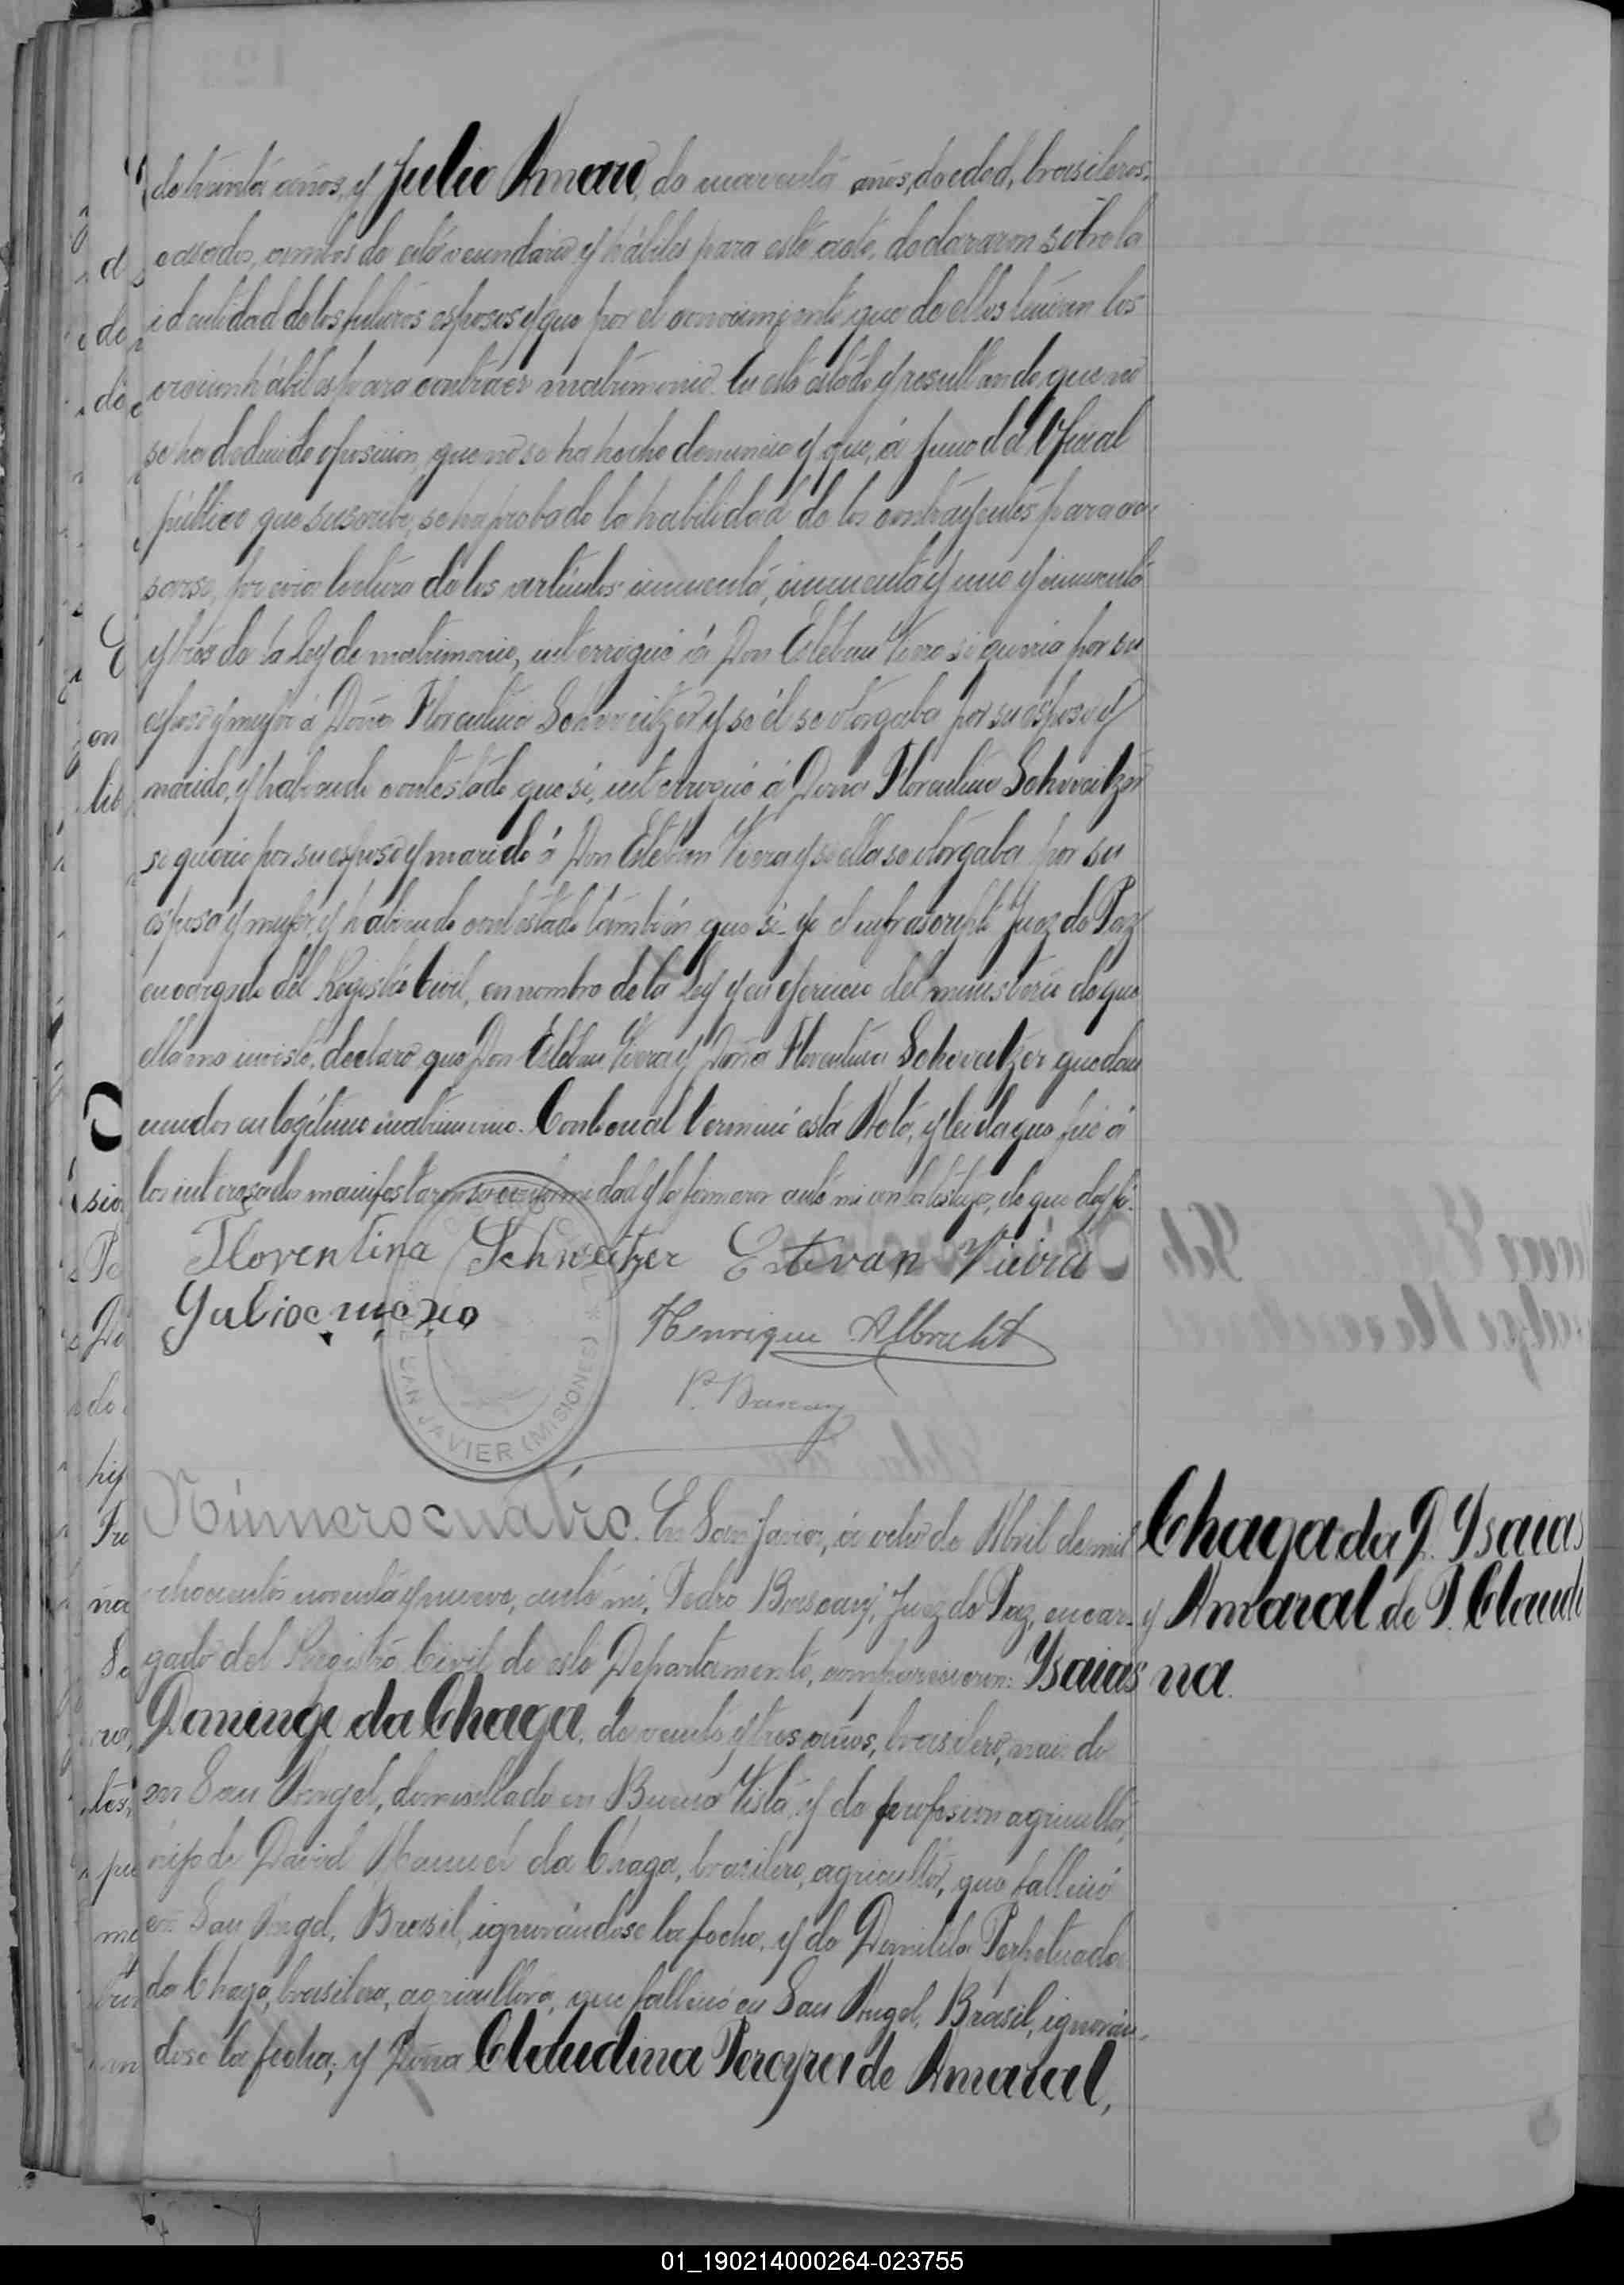 de treinta años, y Julio Amaro, de cuarenta años, de edad, brasileros,
casados, ambos de este vecindario y hábiles para este acto, declararon sobre la
identidad de los futuros esposos y que por el conocimiento que de ellos tienen los
creian hábiles para contraer matrimonio. En este estado y resultando que no
se ha deducido oposicion, que no se ha hecho denuncia y que, á juicio del Oficial
público que suscribe, se ha probado la habilidad de los contrayentes para ca-
sarse, previa lectura de los artículos cincuenta, cincuenta y uno y cincuenta
y tres de la Ley de matrimonio, interrogué á Don Estéban Viera si queria por su
esposa y mujer á Doña Florentina Schweitzer y se él se otorgaba por su esposo y
marido, y habiendo contestado que si, interrogué á Doña Florentina Schweitzer
si queria por su esposo y marido á Don Estéban Viera y si ella se otorgaba por su
esposa y mujer, y habiendo contestado también que si yo el infrascripto Juez de Paz
encargado del Registro Civil, en nombre de la Ley y en ejercicio del ministerio de que
ella me inviste, declaro que Don Estéban Viera y Doña Florentina Schweitzer quedan
unidos en legítimo matrimonio. Con lo cual terminé esta Acta, y leida que fué á
los interesados manifestaron su conformidad y la firmaron ante mi con los testigos, de que doy fé.
Florentina Schweitzer Estevan Vieira
Henrique Albrecht
P. Bascary
SAN JAVIER (MISIONES)
Número cuatro. En San Javier, á ocho de Abril de mil
ochocientos noventa y nueve, ante mi, Pedro Bascary, Juez de Paz, encar-
gado del Registro Civil de este Departamento, comparecieron: Isaias
Domingo da Chaga, de veinte y tres años, brasilero, nacido
en San Angel, domiciliado en Buena Vista, y de profesion agricultor,
hijo de David Manuel da Chaga, brasilero, agricultor, que falleció
en San Angel, Brasil, ignorándose la fecha, y de Domitila
da Chaga, brasilera, agricultora, que falleció en San Angel, Brasil, ignorán-
dose la fecha; y Doña Claudina Pereyra de Amaral,
Chaga da D. Isaias
y Amaral de P. Claudi
na.
01_190214000264-023755